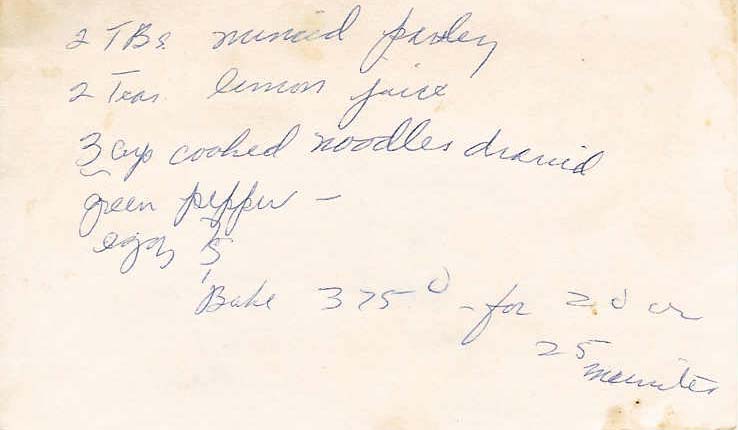 2 TBs. minced parsley
2 Teas. lemon juice
3 cup cooked noodles drained
green pepper –
eggs 5
Bake 375° – for 20 or
25 minutes